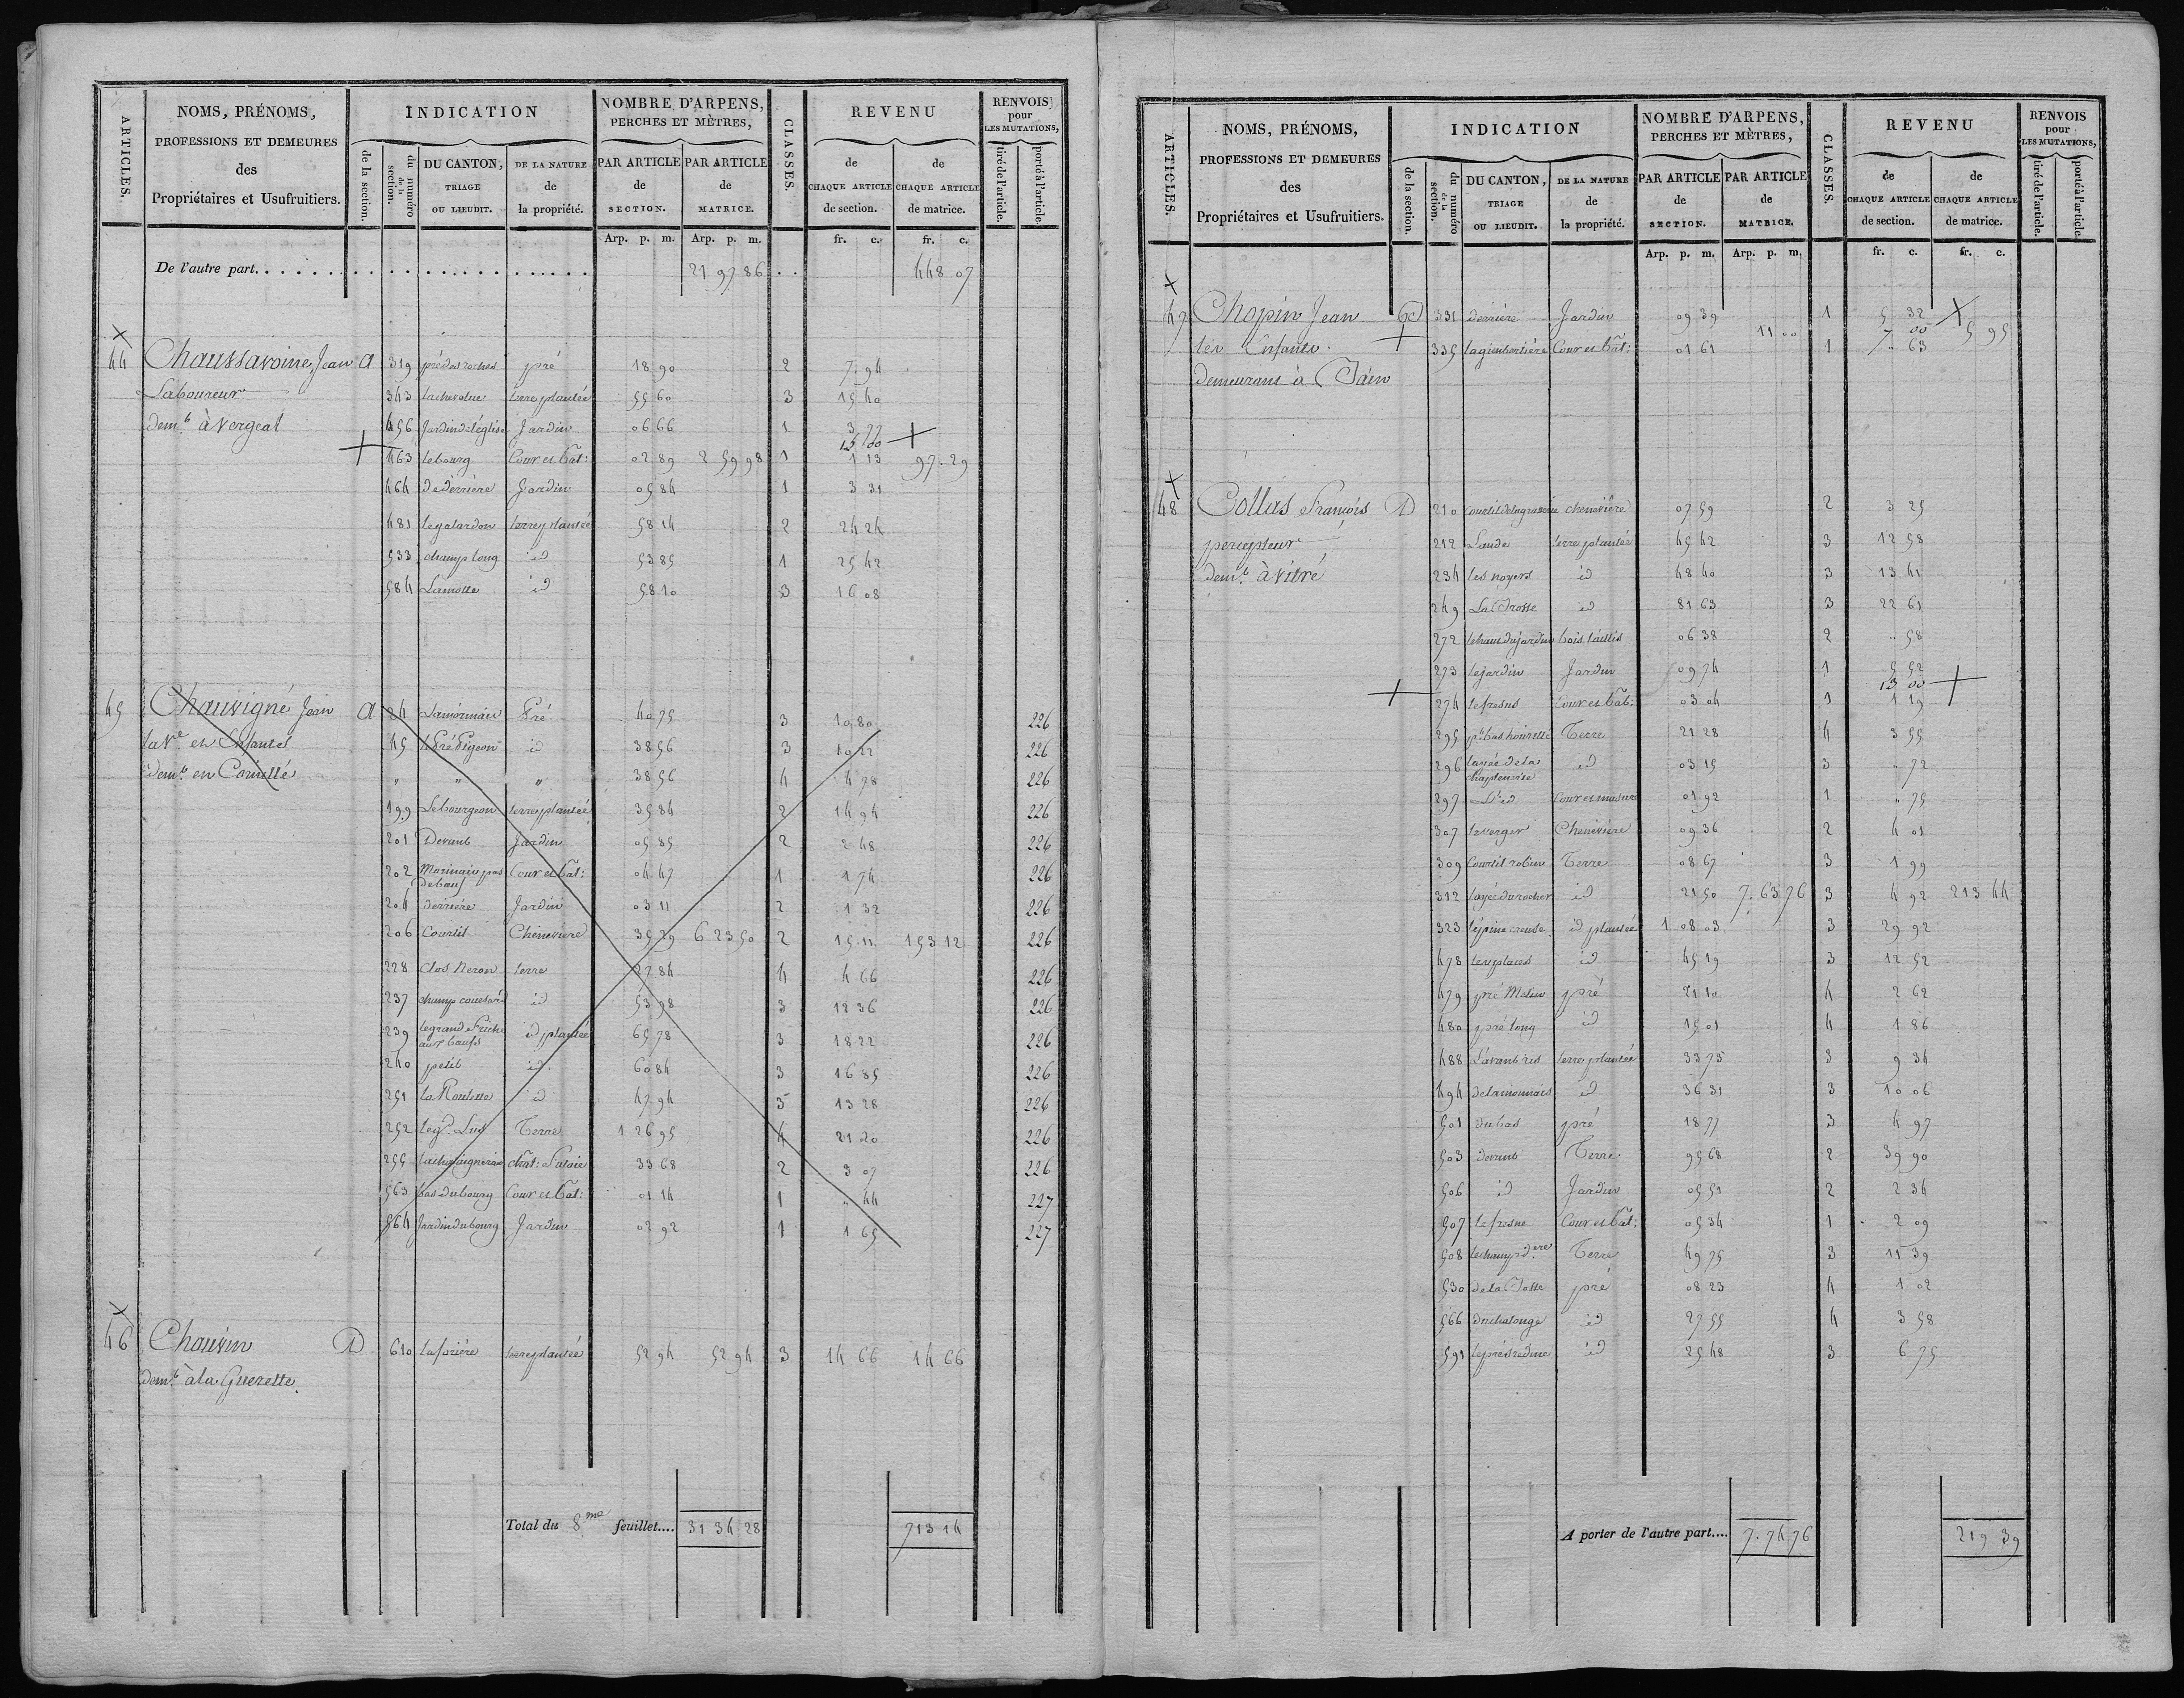 ARTICLES.
NOMS, PRÉNOMS,
PROFESSIONS ET DEMEURES
des
Propriétaires et Usufruitiers.
INDICATION
de la section.
du numéro de la section.
DU CANTON,
TRIAGE
OU LIEUDIT.
DE LA NATURE
de
la propriété.
NOMBRE D'ARPENS,
PERCHES ET MÈTRES,
PAR ARTICLE
de
SECTION.
PAR ARTICLE
de
MATRICE.
CLASSES.
REVENU
de
CHAQUE ARTICLE
de section.
de
CHAQUE ARTICLE
de matrice.
RENVOIS
pour
LES MUTATIONS,
tiré de l'article.
porté à l'article.
Arp. p. m. Arp. p. m. fr. c. fr. c.
De l'autre part. 21 97 86 448 07
44 Chaussavoine, Jean A 319 pré des roches pré 18 90 2 7 94
Laboureur 343 terre plantée 55 60 3 15 40
demt à Vergeal 456 Jardin de l'église Jardin 06 66 1 3 77
15 00
463 le bourg Cour et bât: 02 89 2 59 98 1 1 13 97 29
464 de derrière Jardin 05 84 1 3 31
481 le galardon terre plantée 58 14 2 24 24
533 champ long id 53 85 1 25 42
584 Lamotte id 58 10 3 16 08
45 Chauvigné Jean A 24 Pré 40 75 3 10 80 226
la Ve et Enfants 45 le Pré Pigeon id 38 56 3 10 22 226
demt en Cornillé " " " 38 56 4 4 78 226
199 Le bourgeon terre plantée 35 84 2 14 94 226
201 Devant Jardin 05 85 2 2 48 226
202 Cour et bât: 04 47 1 1 74 226
204 derrière Jardin 03 11 2 1 32 226
206 Courtil Chenevière 35 29 6 23 50 2 15 11 153 12 226
228 Clos Neron terre 27 84 4 4 66 226
237 champ id 53 98 3 12 36 226
239 le grand Friche aux bœufs id plantée 65 78 3 18 22 226
240 petit id 60 84 3 16 85 226
251 la id 47 94 3 13 28 226
252 le gd Terre 1 26 95 4 21 20 226
255 chât: Futaie 33 68 2 3 07 226
563 bas du bourg Cour et bât: 01 14 1 " 44 227
564 Jardin du bourg Jardin 02 92 1 1 65 227
46 Chauvin D 610 terre plantée 52 94 52 94 3 14 66 14 66
demt à la Guerette
Total du 8me feuillet.... 31 34 28 713 14
ARTICLES.
NOMS, PRÉNOMS,
PROFESSIONS ET DEMEURES
des
Propriétaires et Usufruitiers.
INDICATION
de la section.
du numéro de la section.
DU CANTON,
TRIAGE
OU LIEUDIT.
DE LA NATURE
de
la propriété.
NOMBRE D'ARPENS,
PERCHES ET MÈTRES,
PAR ARTICLE
de
SECTION.
PAR ARTICLE
de
MATRICE.
CLASSES.
REVENU
de
CHAQUE ARTICLE
de section.
de
CHAQUE ARTICLE
de matrice.
RENVOIS
pour
LES MUTATIONS,
tiré de l'article.
porté à l'article.
Arp. p. m. Arp. p. m. fr. c. fr. c.
47 Chopin Jean 331 derrière Jardin 09 39 1 5 32
11 00 7 00 5 95
les Enfants 335 Cour et bât: 01 61 1 " 63
demeurans à
48 Collas François D 210 chenevière 07 59 2 3 25
percepteur 212 Lande terre plantée 45 42 3 12 58
demt à Vitré 234 les noyers id 48 40 3 13 41
249 id 81 63 3 22 61
272 le haut du jardin bois taillis 06 38 2 " 58
273 le jardin Jardin 09 74 1 5 52
13 00
274 le fresne Cour et bât: 03 04 1 1 19
295 Terre 21 28 4 3 55
296 id 03 15 3 " 72
297 id Cour et masure 01 92 1 " 75
307 le verger Chenevière 09 36 2 4 01
309 Courtil robin Terre 08 67 3 1 99
312 du rocher id 21 50 7 63 76 3 4 92 213 44
323 l'épine creuse id plantée 1 08 03 3 29 92
478 les places id 45 19 3 12 52
479 pré Melin pré 21 10 4 2 62
480 pré long id 15 01 4 1 86
488 terre plantée 33 73 3 9 34
494 id 36 31 3 10 06
501 du bas pré 18 77 3 4 97
503 devant Terre 95 68 2 39 90
506 id Jardin 05 51 2 2 34
507 le fresne Cour et bât: 05 34 1 2 09
508 le champ Terre 49 75 3 11 39
530 de la pré 08 23 4 1 02
566 id 27 55 4 3 58
591 id 25 48 3 6 75
A porter de l'autre part.... 7 74 76 219 39